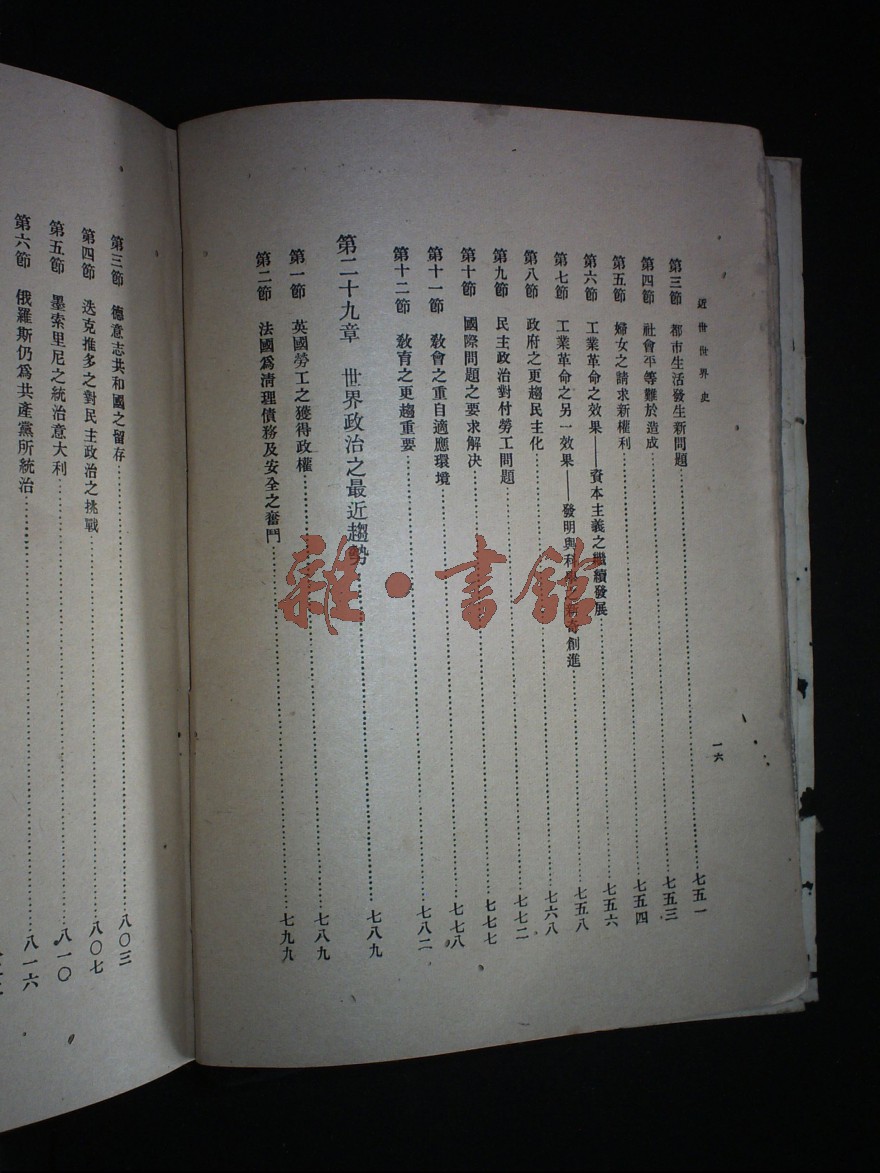 近世世界史
一六
第三節 都市生活發生新問題……七五一
第四節 社會平等難於造成……七五三
第五節 婦女之請求新權利……七五四
第六節 工業革命之效果——資本主義之繼續發展……七五六
第七節 工業革命之另一效果——發明與科學之新奇創進……七五八
第八節 政府之更趨民主化……七六八
第九節 民主政治對付勞工問題……七七二
第十節 國際問題之要求解決……七七七
第十一節 教會之重自適應環境……七七八
第十二節 教育之更趨重要……七八二
第二十九章 世界政治之最近趨勢……七八九
第一節 英國勞工之獲得政權……七八九
第二節 法國爲清理債務及安全之奮鬥……七九九
第三節 德意志共和國之留存……八〇三
第四節 迭克推多之對民主政治之挑戰……八〇七
第五節 墨索里尼之統治意大利……八一〇
第六節 俄羅斯仍爲共產黨所統治……八一六
雜·書館